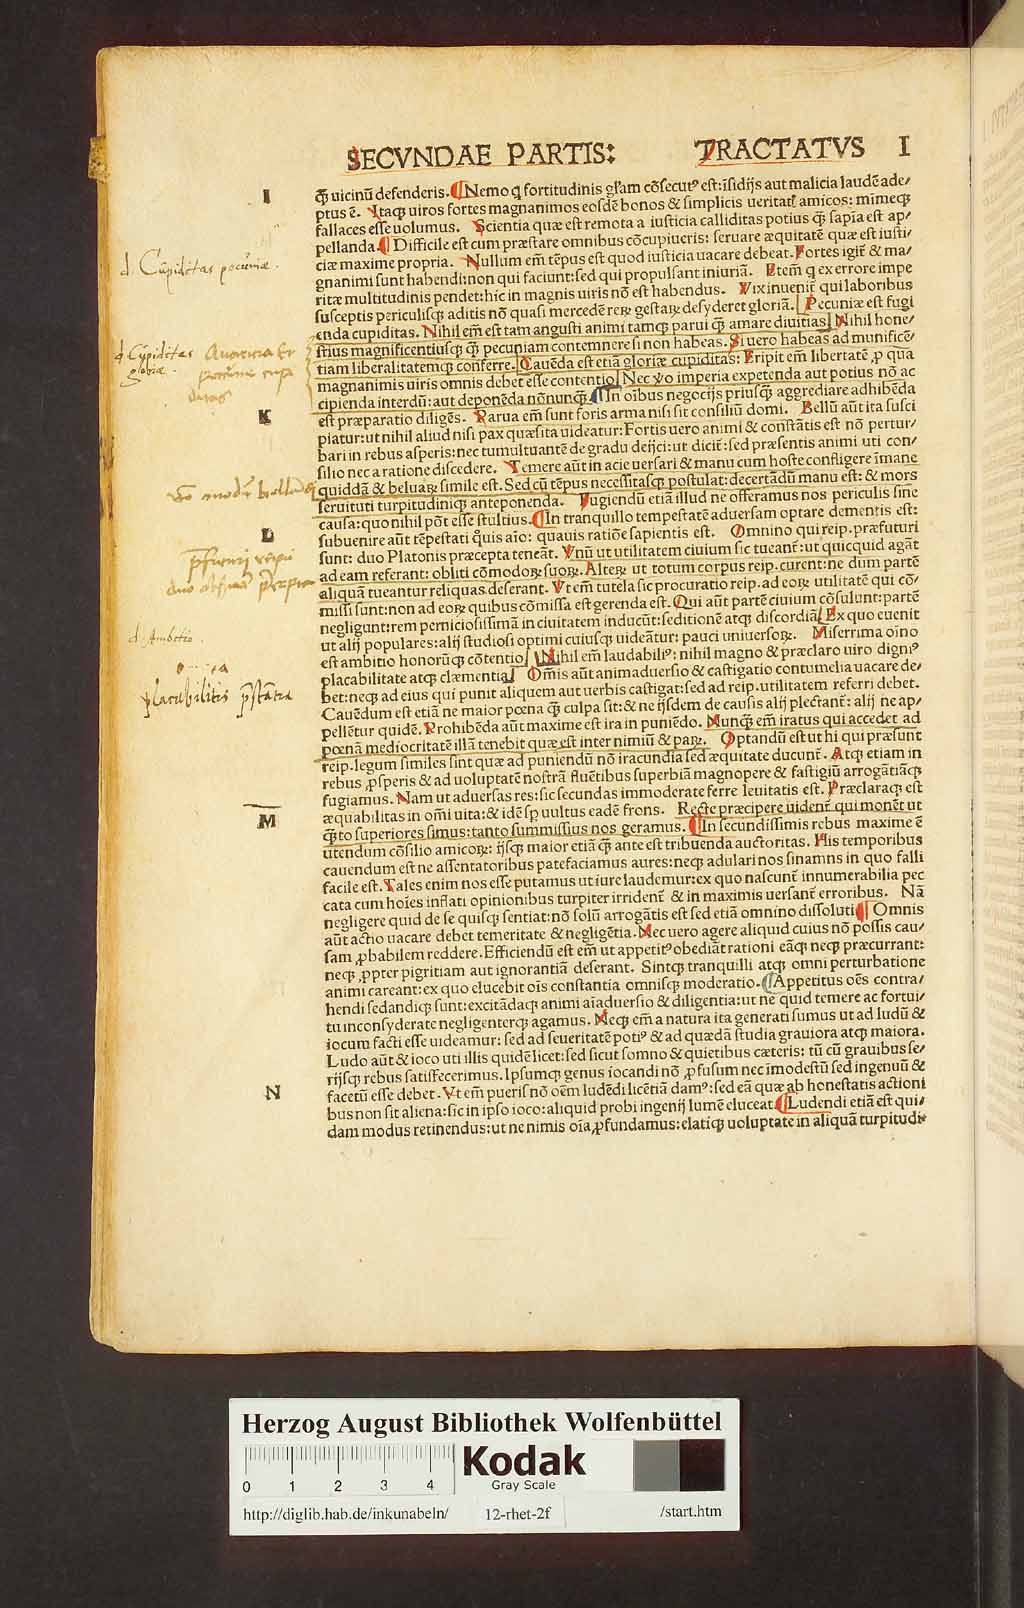 SECVNDAE PARTIS: TRACTATVS I
I
ꝙ̃ uicinũ defenderis. ¶Nemo q fortitudinis gl̃am cõsecutꝰ est: ĩsidijs aut malicia laudẽ ade/
ptus ẽ. Itaqꝫ uiros fortes magnanimos eosdẽ bonos & simplicis ueritatꝭ amicos: mĩmeqꝫ
fallaces esse uolumus. Scientia quæ est remota a iusticia calliditas potius ꝙ̃ sapĩa est ap/
pellanda. ¶Difficile est cum præstare omnibus cõcupiueris: seruare æquitatẽ quæ est iusti/
ciæ maxime propria. Nullum em̃ tẽpus est quod iusticia uacare debeat. Fortes igit̃ & ma/
gnanimi sunt habendi: non qui faciunt: sed qui propulsant iniuriã. Itẽm q ex errore impe
ritæ multitudinis pendet: hic in magnis uiris nõ est habendus. Vix inuenit̃ qui laboribus
susceptis periculisqꝫ aditis nõ quasi mercedẽ reꝝ gestaꝝ desyderet gloriã. Pecuniæ est fugi
enda cupiditas. Nihil em̃ est tam angusti animi tamqꝫ parui ꝙ̃ amare diuitias Nihil hone/
stius magnificentiusqꝫ ꝙ̃ pecuniam contemnere si non habeas. Si uero habeas ad munificẽ/
tiam liberalitatemqꝫ conferre. Cauẽda est etiã gloriæ cupiditas: Eripit em̃ libertatẽ ꝓ qua
magnanimis uiris omnis debet esse contentio Nec ṽo imperia expetenda aut potius nõ ac
cipienda interdũ: aut deponẽda nõnunqꝫ. ¶In oĩbus negocijs priusꝙ̃ aggrediare adhibẽda
K
est præparatio diligẽs. Parua em̃ sunt foris arma nisi sit consiliũ domi. Bellũ aũt ita susci
piatur: ut nihil aliud nisi pax quæsita uideatur: Fortis uero animi & constãtis est nõ pertur/
bari in rebus asperis: nec tumultuantẽ de gradu deijci: ut dicit̃: sed præsentis animi uti con/
silio nec a ratione discedere. Temere aũt in acie uersari & manu cum hoste confligere ĩmane
quiddã & beluaꝝ simile est. Sed cũ tẽpus necessitasqꝫ postulat: decertãdũ manu est: & mors
seruituti turpitudiniqꝫ anteponenda. Fugiendũ etiã illud ne offeramus nos periculis sine
causa: quo nihil põt esse stultius. ¶In tranquillo tempestatẽ aduersam optare dementis est:
L
subuenire aũt tẽpestati q̃uis aĩo: quauis ratiõe sapientis est. Omnino qui reip. præfuturi
sunt: duo Platonis præcepta teneãt. Vnũ ut utilitatem ciuium sic tueant̃: ut quicquid agãt
ad eam referant: obliti cõmodoꝝ suoꝝ. Alteꝝ ut totum corpus reip. curent: ne dum partẽ
aliquã tueantur reliquas deserant. Vt em̃ tutela sic procuratio reip. ad eoꝝ utilitatẽ qui cõ/
missi sunt: non ad eoꝝ quibus cõmissa est gerenda est. Qui aũt partẽ ciuium cõsulunt: partẽ
negligunt: rem perniciosissimã in ciuitatem inducũt: seditionẽ atqꝫ discordiã Ex quo euenit
ut alij populares: alij studiosi optimi cuiusqꝫ uideãtur: pauci uniuersoꝝ. Miserrima oĩno
est ambitio honorũqꝫ cõtentio Nihil em̃ laudabiliꝰ: nihil magno & præclaro uiro dignꝰ
placabilitate atqꝫ clæmentia Om̃is aũt animaduersio & castigatio contumelia uacare de/
bet: neqꝫ ad eius qui punit aliquem aut uerbis castigat: sed ad reip. utilitatem referri debet.
Cauẽdum est etiã ne maior pœna ꝙ̃ culpa sit: & ne ijsdem de causis alij plectant̃: alij ne ap/
pellẽtur quidẽ. Prohibẽda aũt maxime est ira in puniẽdo. Nunqꝫ em̃ iratus qui accedet ad
pœnã mediocritatẽ illã tenebit quæ est inter nimiũ & parꝝ. Optandũ est ut hi qui præsunt
reip. legum similes sint quæ ad puniendũ nõ iracundia sed æquitate ducunt̃. Atqꝫ etiam in
rebus ꝓsperis & ad uoluptatẽ nostrã fluẽtibus superbiã magnopere & fastigiũ arrogãtiãqꝫ
fugiamus. Nam ut aduersas res: sic secundas immoderate ferre leuitatis est. Præclaraqꝫ est
æquabilitas in om̃i uita: & idẽ sꝑ uultus eadẽ frons. Recte præcipere uident̃ qui monẽt ut
M
ꝙ̃to superiores simus: tanto summissius nos geramus. ¶In secundissimis rebus maxime ẽ
utendum cõsilio amicoꝝ: ijsqꝫ maior etiã ꝙ̃ ante est tribuenda auctoritas. His temporibus
cauendum est ne assentatoribus patefaciamus aures: neqꝫ adulari nos sinamns in quo falli
facile est. Tales enim nos esse putamus ut iure laudemur: ex quo nascunt̃ innumerabilia pec
cata cum hoĩes inflati opinionibus turpiter irrident̃ & in maximis uersant̃ erroribus. Nã
negligere quid de se quisqꝫ sentiat: nõ solũ arrogãtis est sed etiã omnino dissoluti ¶Omnis
aũt actio uacare debet temeritate & negligẽtia. Nec uero agere aliquid cuius nõ possis cau/
sam ꝓbabilem reddere. Efficiendũ est em̃ ut appetitꝰ obediãt rationi eãqꝫ neqꝫ præcurrant:
neqꝫ ꝓpter pigritiam aut ignorantiã deserant. Sintqꝫ tranquilli atqꝫ omni perturbatione
animi careant: ex quo elucebit oĩs constantia omnisqꝫ moderatio. ¶Appetitus oẽs contra/
hendi sedandiqꝫ sunt: excitãdaqꝫ animi aĩaduersio & diligentia: ut ne quid temere ac fortui/
tu inconsyderate negligenterqꝫ agamus. Neqꝫ em̃ a natura ita generati sumus ut ad ludũ &
iocum facti esse uideamur: sed ad seueritatẽ potiꝰ & ad quædã studia grauiora atqꝫ maiora.
Ludo aũt & ioco uti illis quidẽ licet: sed sicut somno & quietibus cæteris: tũ cũ grauibus se/
rijsqꝫ rebus satisfecerimus. Ipsumqꝫ genus iocandi nõ ꝓfusum nec ĩmodestũ sed ingenuũ &
N
facetũ esse debet. Vt em̃ pueris nõ oẽm ludẽdi licẽtiã damꝰ: sed eã quæ ab honestatis actioni
bus non sit aliena: sic in ipso ioco: aliquid probi ingenij lumẽ eluceat ¶Ludendi etiã est qui/
dam modus retinendus: ut ne nimis oĩa ꝓfundamus: elatiqꝫ uoluptate in aliquã turpitudi/
d. Cupiditas pecuniæ.
d. Cupiditas gloriæ.
d. Ambitio.
placabilitis
Herzog August Bibliothek Wolfenbüttel
0 1 2 3 4
Kodak
Gray Scale
http://diglib.hab.de/inkunabeln/ 12-rhet-2f /start.htm